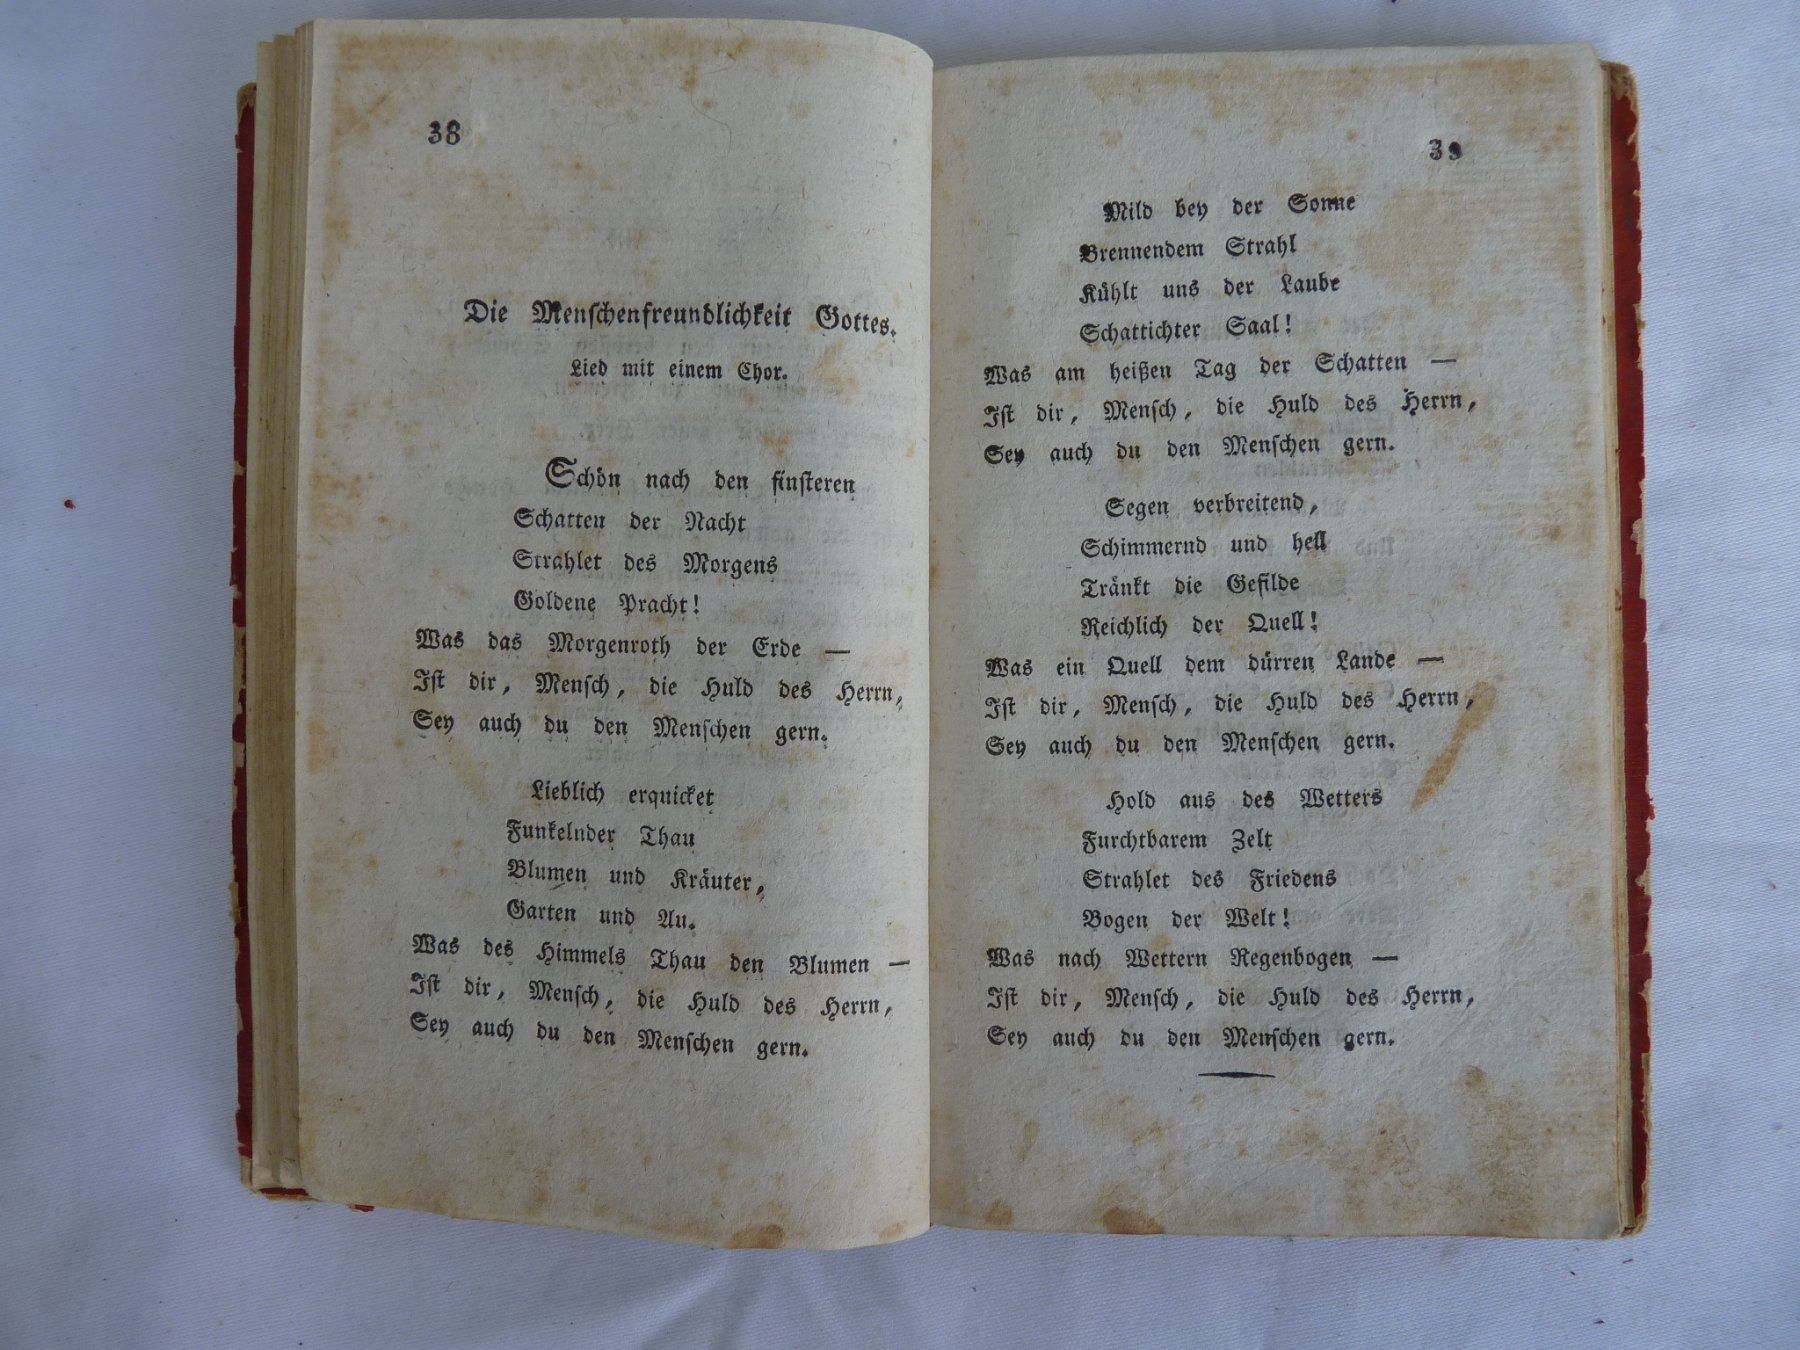 38
Die Menschenfreundlichkeit Gottes.
Lied mit einem Chor.
Schön nach den finsteren
Schatten der Nacht
Strahlet des Morgens
Goldene Pracht!
Was das Morgenroth der Erde —
Ist dir, Mensch, die Huld des Herrn,
Sey auch du den Menschen gern.
Lieblich erquicket
Funkelnder Thau
Blumen und Kräuter,
Garten und Au.
Was des Himmels Thau den Blumen —
Ist dir, Mensch, die Huld des Herrn,
Sey auch du den Menschen gern.
39
Mild bey der Sonne
Brennendem Strahl
Kühlt uns der Laube
Schattichter Saal!
Was am heißen Tag der Schatten —
Ist dir, Mensch, die Huld des Herrn,
Sey auch du den Menschen gern.
Segen verbreitend,
Schimmernd und hell
Tränkt die Gefilde
Reichlich der Quell!
Was ein Quell dem dürren Lande —
Ist dir, Mensch, die Huld des Herrn,
Sey auch du den Menschen gern.
Hold aus des Wetters
Furchtbarem Zelt
Strahlet des Friedens
Bogen der Welt!
Was nach Wettern Regenbogen —
Ist dir, Mensch, die Huld des Herrn,
Sey auch du den Menschen gern.